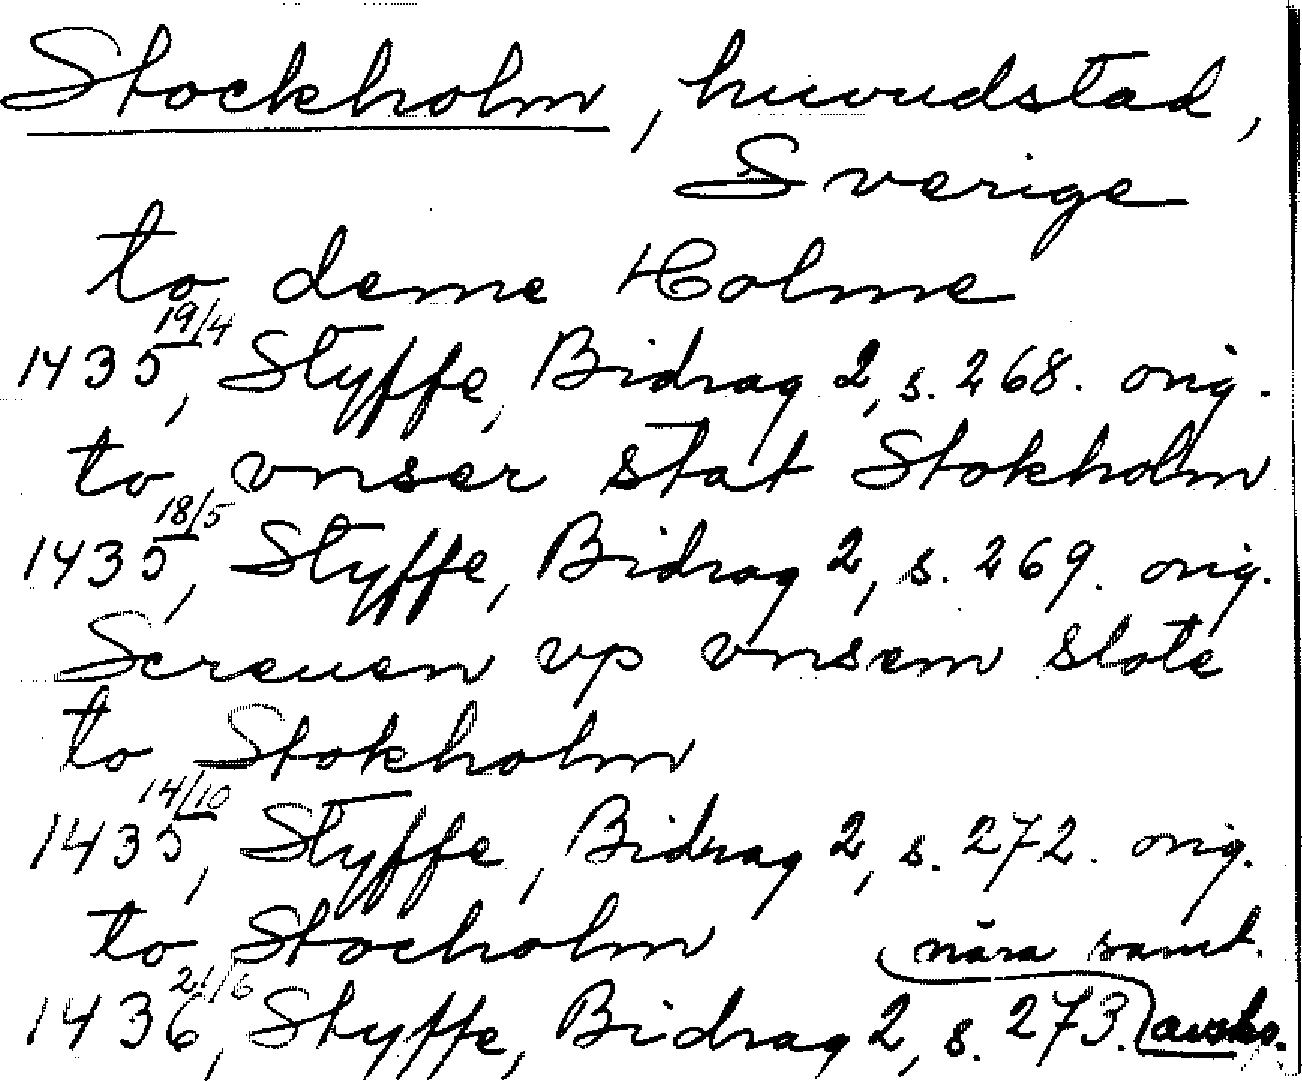 Stockholm, huvudstad,
Sverige
to deme Holme
1435 19/4, Styffe, Bidrag 2, s. 268. orig.
to vnser stat Stokholm
1435 18/5, Styffe, Bidrag 2, s. 269. orig.
Screuen vp vnsem slote
to Stokholm
1435 14/10, Styffe, Bidrag 2, s. 272. orig.
to Stocholm
nära samt.
1436 21/6, Styffe, Bidrag 2, s. 273. avskr.